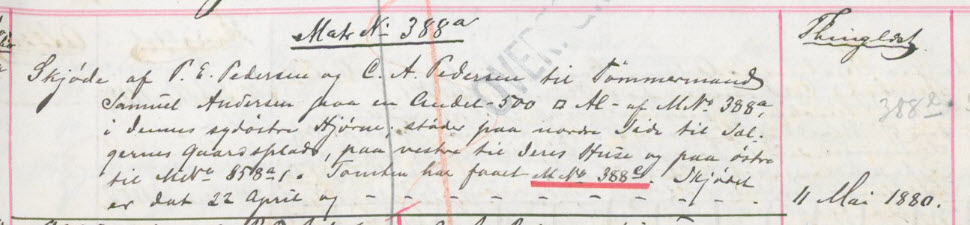 Matr No 388a
Thinglæst.
Skjøde af P. E. Pedersen og C. A. Pedersen til Tømmermand
Samuel Andersen paa en Andel - 500 □ Al - af MNo 388a,
i dennes sydöstre Hjørne; støder paa nordre Side til Sæl-
gernes Gaardsplads, paa vestre til deres Huse og paa östre
til MNo 858a/. Tomten har faaet MNo 388e. Skjødet
er dat 22 April og - - - - - - - - - - - 11 Mai 1880.
388e
OVER